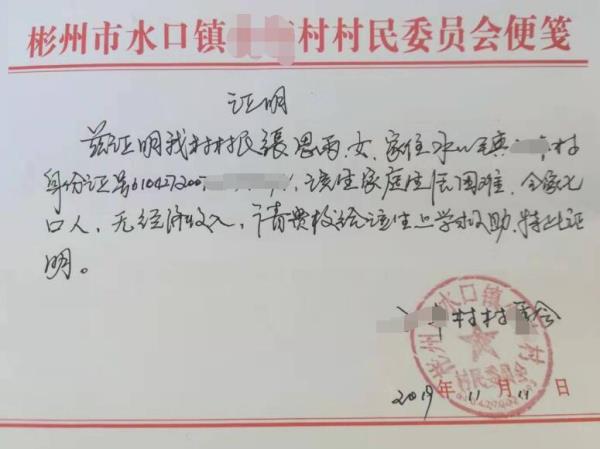 彬州市水口镇 村村民委员会便笺
证明
兹证明我村村民张思雨,女,家住水口镇 村
身份证号610427200 ,该生家庭生活困难,全家七
口人,无经济收入,请贵校给该生上学求以助,特此证
明。
村村委会
彬州市水口镇 村
村民委员会
2019年11月11日